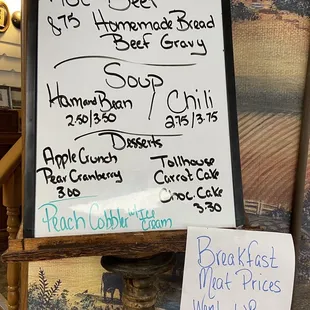 Hot Beef
8.75 Homemade Bread
Beef Gravy
Soup
Ham and Bean
2.50/3.50
Chili
2.75/3.75
Desserts
Apple Crunch
Pear Cranberry
3.00
Tollhouse
Carrot Cake
Choc. Cake
3.30
Peach Cobbler w/ Ice
Cream
Breakfast
Meat Prices